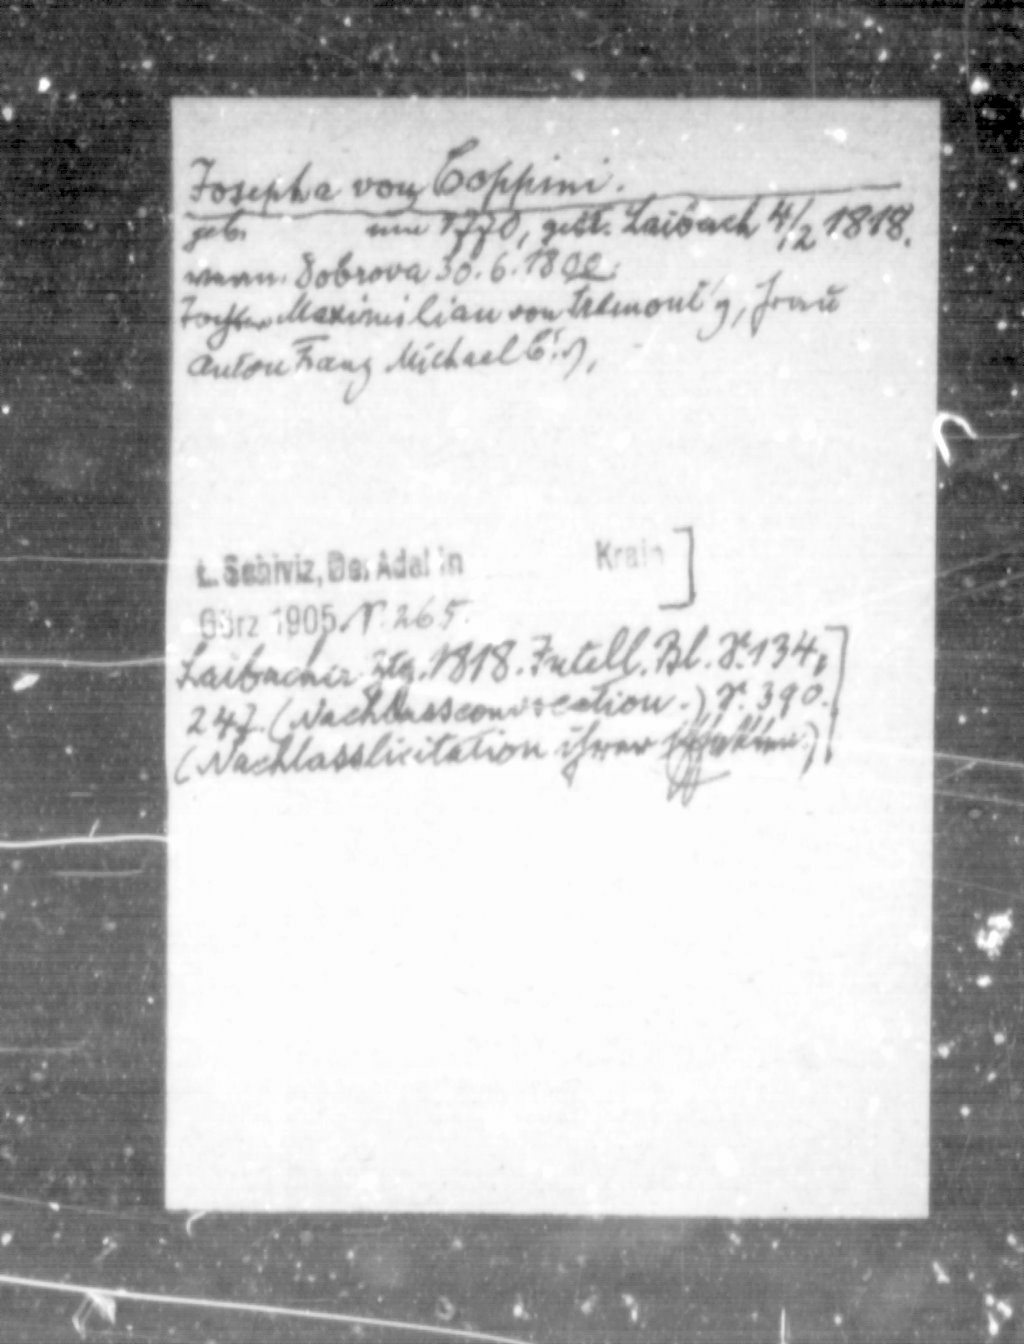 Josepha von Coppini.
geb. um 1770, gest. Laibach 4/2 1818.
verm. Dobrova 30.6.1800.
Tochter Maximilian von, Frau
Anton Franz Michael C's),
L. Schiviz, Der Adel in Krain]
Görz 1905. S. 265.
Laibacher Ztg. 1818. Intell. Bl. S. 134,
247. (Nachlassconvocation.) S. 390.
(Nachlasslicitation ihrer Effekten.)]